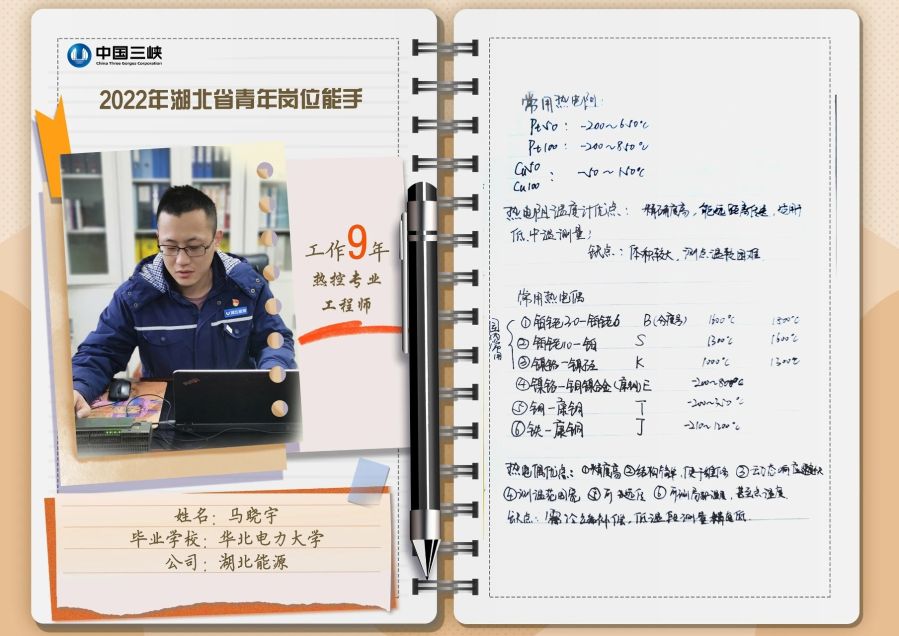 中国三峡
China Three Gorges Corporation
2022年湖北省青年岗位能手
工作9年
热控专业
工程师
姓名：马晓宇
毕业学校：华北电力大学
公司：湖北能源
常用热电阻：
Pt50：-200~650℃
Pt100：-200~850℃
Cu50
Cu100：-50~150℃
热电阻温度计优点：精确度高，能远距离传送，适用
低、中温测量；
缺点：体积较大，测点温较困难
常用热电偶
①铂铑30-铂铑6 B(分度号) 1600℃ 1800℃
②铂铑10-铂 S 1300℃ 1600℃
③镍铬-镍硅 K 1000℃ 1300℃
④镍铬-铜镍合金(康铜) E -200~800℃
⑤铜-康铜 T
⑥铁-康铜 J -210~1200℃
热电偶优点：①精度高 ②结构简单，便于维修 ③动态响应
④测温范围宽
缺点：需冷端补偿，低温段测量精度低